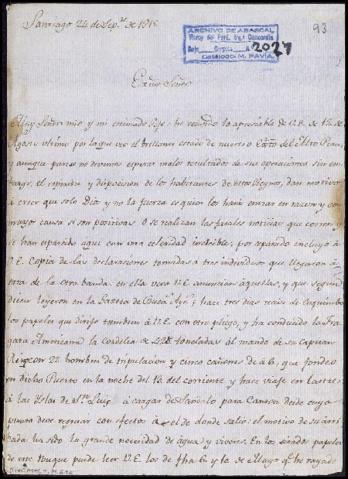 Santiago 24 de Sep.e de 1816
93
ARCHIVO DE ABASCAL
Virrey del Perú, Mqs. Concordia
2027
Catálogo M. PAVIA
Exmo Señor
Muy Señor mio y mi estimado Gefe: he recibido la apreciable de V.E. de 12 de
Agosto ultimo por la que veo el brillante estado de nuestro Exto del Alto Perú,
y aunque parece no debemos esperar malos resultados de sus operaciones sin em-
bargo, el opinion y disposicion de los habitantes de estos Reynos, dan motivo
à creer que solo Dios y no la fuerza es quien los hará entrar en razon y con
mayor causa si son positivas ò se realizan las fatales noticias que corren, y
se han esparcido aqui con una celeridad increible; por separado incluyo à
V.E. Copia de las declaraciones tomadas à tres individuos que llegaron à
tierra de la otra banda, en ella vera V.E. anuncian aquellas, y que segun
dicen leyeron en la Gazeta de Buen.s Ay.s; hace tres dias recivi de Coquimbo
los papeles que dirijo tambien à V.E. con otro pliego, y ha conducido la Fra-
gata Americana la Cordelia de 428 toneladas al mando de su Capitan
con 22 hombres de tripulacion y cinco cañones de à 6, que fondeo
en dicho Puerto en la noche del 13 del corriente y hace viaje en lastre
à las Islas de S.n Luis à cargar de Sandalo para Canton desde cuyo
punto deve regresar con efectos à el de donde salio: el motivo de su arri-
bada ha sido la grande necesidad de agua y viveres. En los citados papeles
de ese buque puede leer V.E. los de fha 6 y 12 de Mayo que he rayado